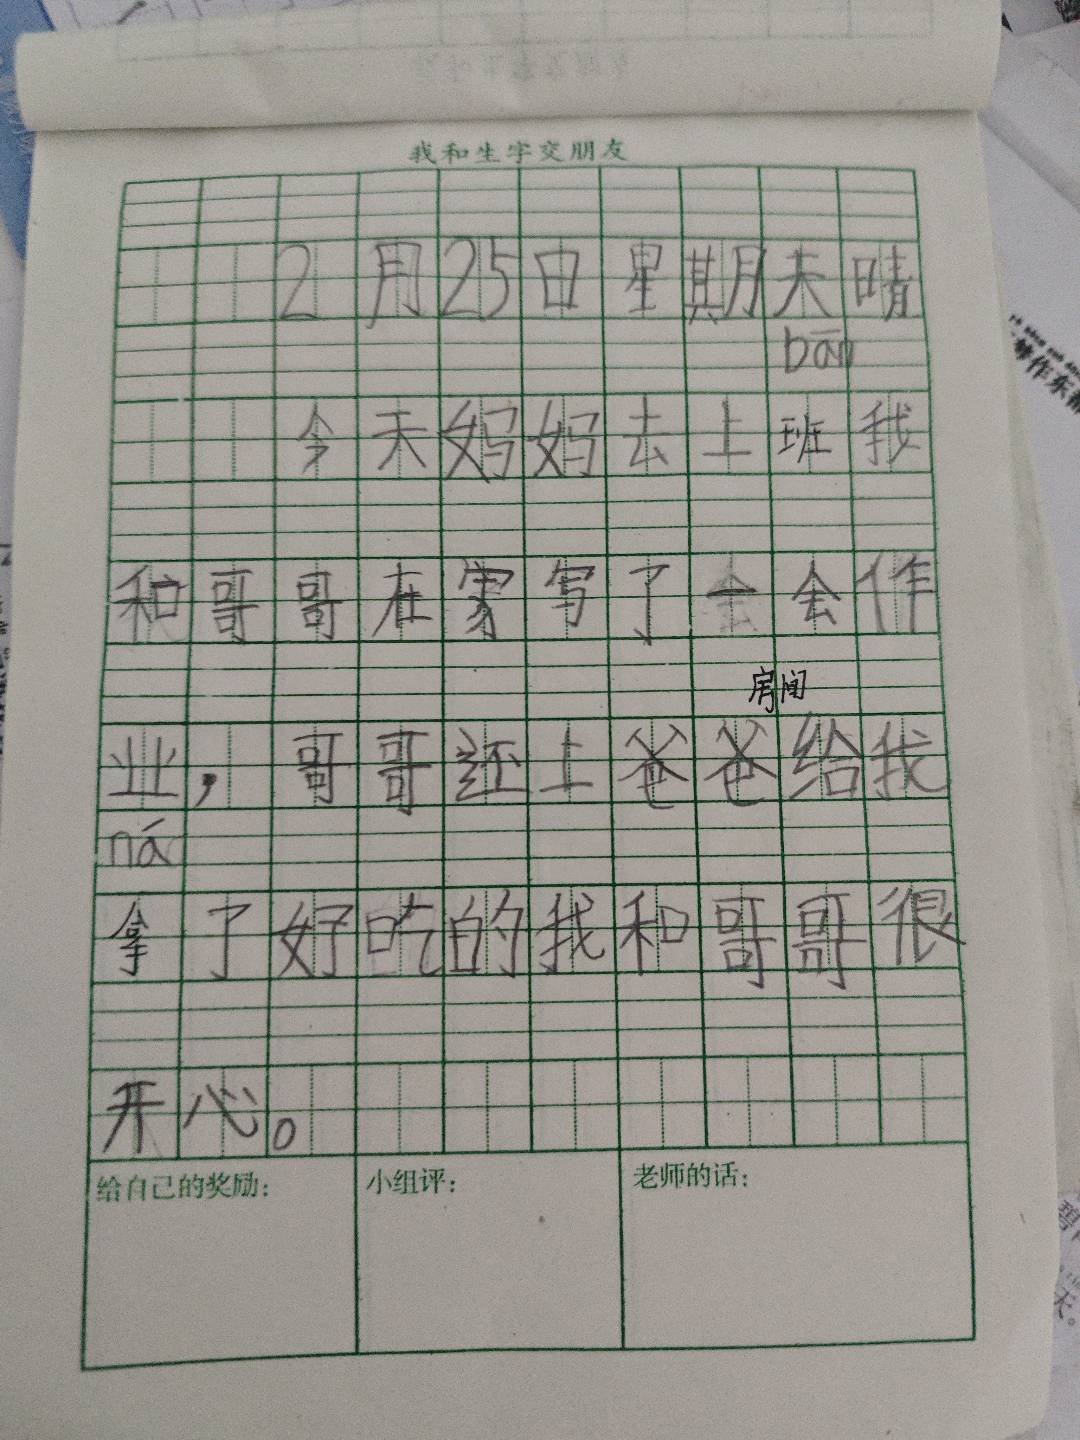 我和生字交朋友
2月25日星期天晴
bān
今天妈妈去上班我
和哥哥在家写了一会会作
房间
业，哥哥还上爸爸给我
ná
拿了好吃的我和哥哥很
开心。
给自己的奖励：
小组评：
老师的话：